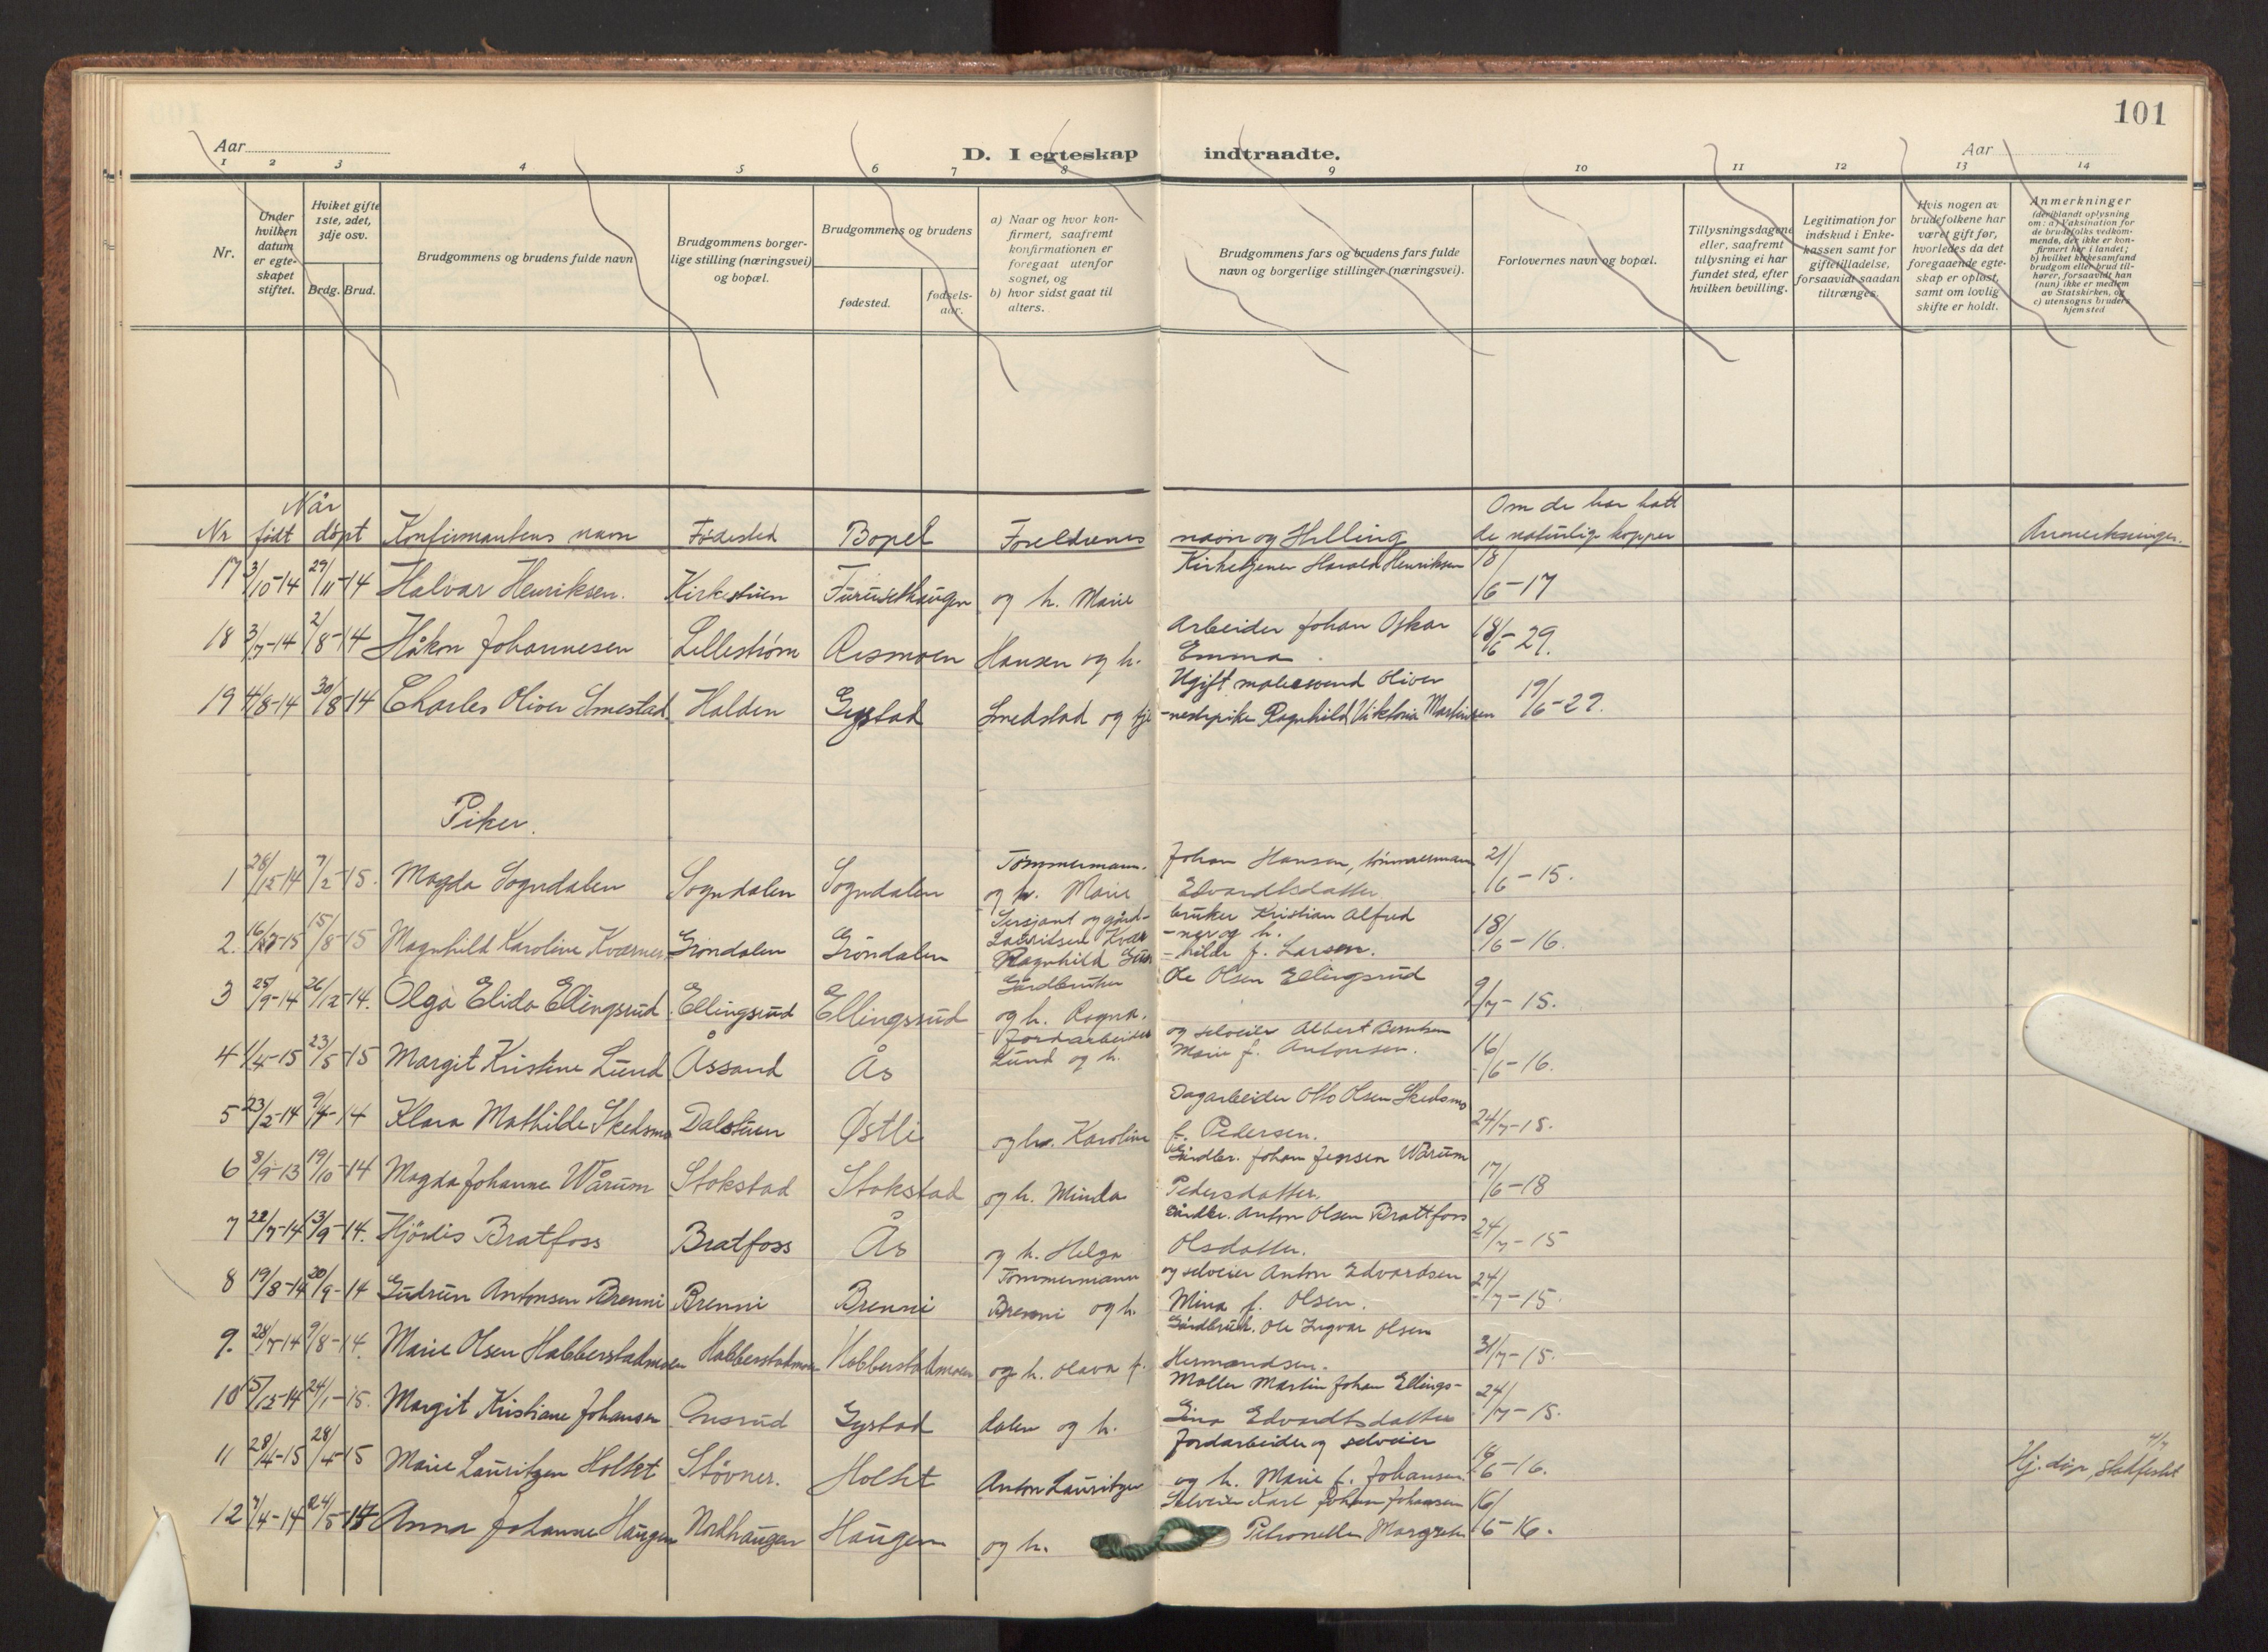 101
Aar
D. I egteskap indtraadte.
Aar
1 2 3 4 5 6 7 8 9 10 11 12 13 14
Nr.
Under hvilken datum er egteskapet stiftet.
Hviket gifte 1ste, 2det, 3dje osv.
Brdg. Brud.
Brudgommens og brudens fulde navn
Brudgommens borgerlige stilling (næringsvei) og bopæl.
Brudgommens og brudens
fødested.
fødselsaar.
a) Naar og hvor konfirmert, saafremt konfirmationen er foregaat utenfor sognet, og
b) hvor sidst gaat til alters.
Brudgommens fars og brudens fars fulde navn og borgerlige stillinger (næringsvei).
Forlovernes navn og bopæl.
Tillysningsdagene eller, saafremt tillysning ei har fundet sted, efter hvilken bevilling.
Legitimation for indskud i Enkekassen samt for giftetilladelse, forsaavidt saadan tiltrænges.
Hvis nogen av brudefolkene har været gift før, hvorledes da det foregaaende egteskap er opløst, samt om lovlig skifte er holdt.
Anmerkninger
(deriblandt oplysning om: a) Vaksination for de brudefolks vedkommende, der ikke er konfirmert her i landet; b) hvilket kirkesamfund brudgom eller brud tilhører, forsaavidt han (hun) ikke er medlem av Statskirken, og c) utensogns bruders hjemsted
Nr Når født døpt Konfirmantens navn Fødested Bopel Foreldrenes navn og stilling Om de har hatt de naturlige kopper Anmerkninger.
17 3/10-14 29/11-14 Halvar Henriksen. Kirkestuen Furusethaugen Kirketjener Harald Henriksen og h. Marie 18/6-17
18 3/7-14 2/8-14 Håkon Johannesen Lillestrøm Rismoen Arbeider Johan Oskar Hansen og h. Emma. 18/6-29.
19 4/8-14 30/8-14 Charles Oliver Smestad Halden Gystad Ugift malersvend Oliver Smedstad og tjenestepike Ragnhild Viktoria Martinsen 19/6-29.
Piker.
1 28/12-14 7/2-15. Magda Sogndalen Sogndalen Sogndalen Tømmermann. Johan Hansen, tømmermann og h. Marie Edvardtsdatter 21/6-15.
2. 15/8-15 Magnhild Karoline Kværner Grøndalen Grøndalen Sersjant og gårdbruker Kristian Alfred Lauritsen Kværner og h. Ragnhild f. Larsen. 18/6-16.
3 25/9-14 26/12-14. Olga Elida Ellingsrud Ellingsrud Ellingsrud Gårdbruker Ole Olsen Ellingsrud og h. Ragna. 9/7-15.
4 1/4-15 23/5-15 Margit Kristine Lund Åssand Ås Jordarbeider og selveier Albert Berntsen Lund og h. Marie f. Antonsen. 16/6-16.
5 23/2-14 9/4-14 Klara Mathilde Skedsmo Dalstuen Østli Dagarbeider Otto Olsen Skedsmo og h. Karoline f. Pedersen. 24/7-15.
6 8/9-13 19/10-14 Magda Johanne Wårum Stokstad Stokstad Gårdbr. Johan Jensen Wårum og h. Minda Pedersdatter. 17/6-18
7 22/7-14 13/9-14. Hjördis Bratfoss Bratfoss Ås Gårdbr. Anton Olsen Brattfoss og h. Helga Olsdatter. 24/7-15
8 19/8-14 20/9-14 Gudrun Antonsen Brenni Brenni Brenni Tømmermann og selveier Anton Edvardsen Brenni og h. Mina f. Olsen. 24/7-15.
9. 28/5-14 9/8-14. Marie Olsen Habberstadmoen Habberstadmoen Habberstadmoen Gårdbruk. Ole Ingvar Olsen og h. Olava f. Hermandsen. 31/7-15.
10 15/12-14 24/1-15. Margit Kristiane Johansen Onsrud Gystad Møller Martin Johan Ellingsdalen og h. Gina Edvardtsdatter 24/7-15.
11 28/4-15 Marie Lauritzen Holset Støvner. Holset Jordarbeider og selveier Anton Lauritzen og h. Marie f. Johansen. 18/6-16. Hj. døp. stadfestet 4/7
12 7/4-14 24/5-14 Anna Johanne Haugen Nordhaugen Haugen Selveier Karl Johan Johansen og h. Petronelle Margrete 16/6-16.